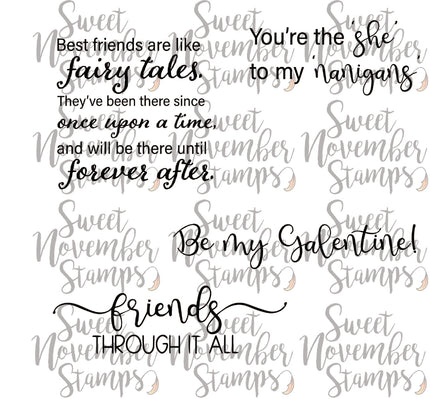 Best friends are like
fairy tales.
They've been there since
once upon a time,
and will be there until
forever after.
You're the 'she'
to my 'nanigans'
Be my Galentine!
friends
THROUGH IT ALL
Sweet
November
Stamps
Sweet
November
Stamps
Sweet
November
Stamps
Sweet
November
Stamps
Sweet
November
Stamps
Sweet
November
Stamps
Sweet
November
Stamps
Sweet
November
Stamps
Sweet
November
Stamps
Sweet
November
Stamps
Sweet
November
Stamps
Sweet
November
Stamps